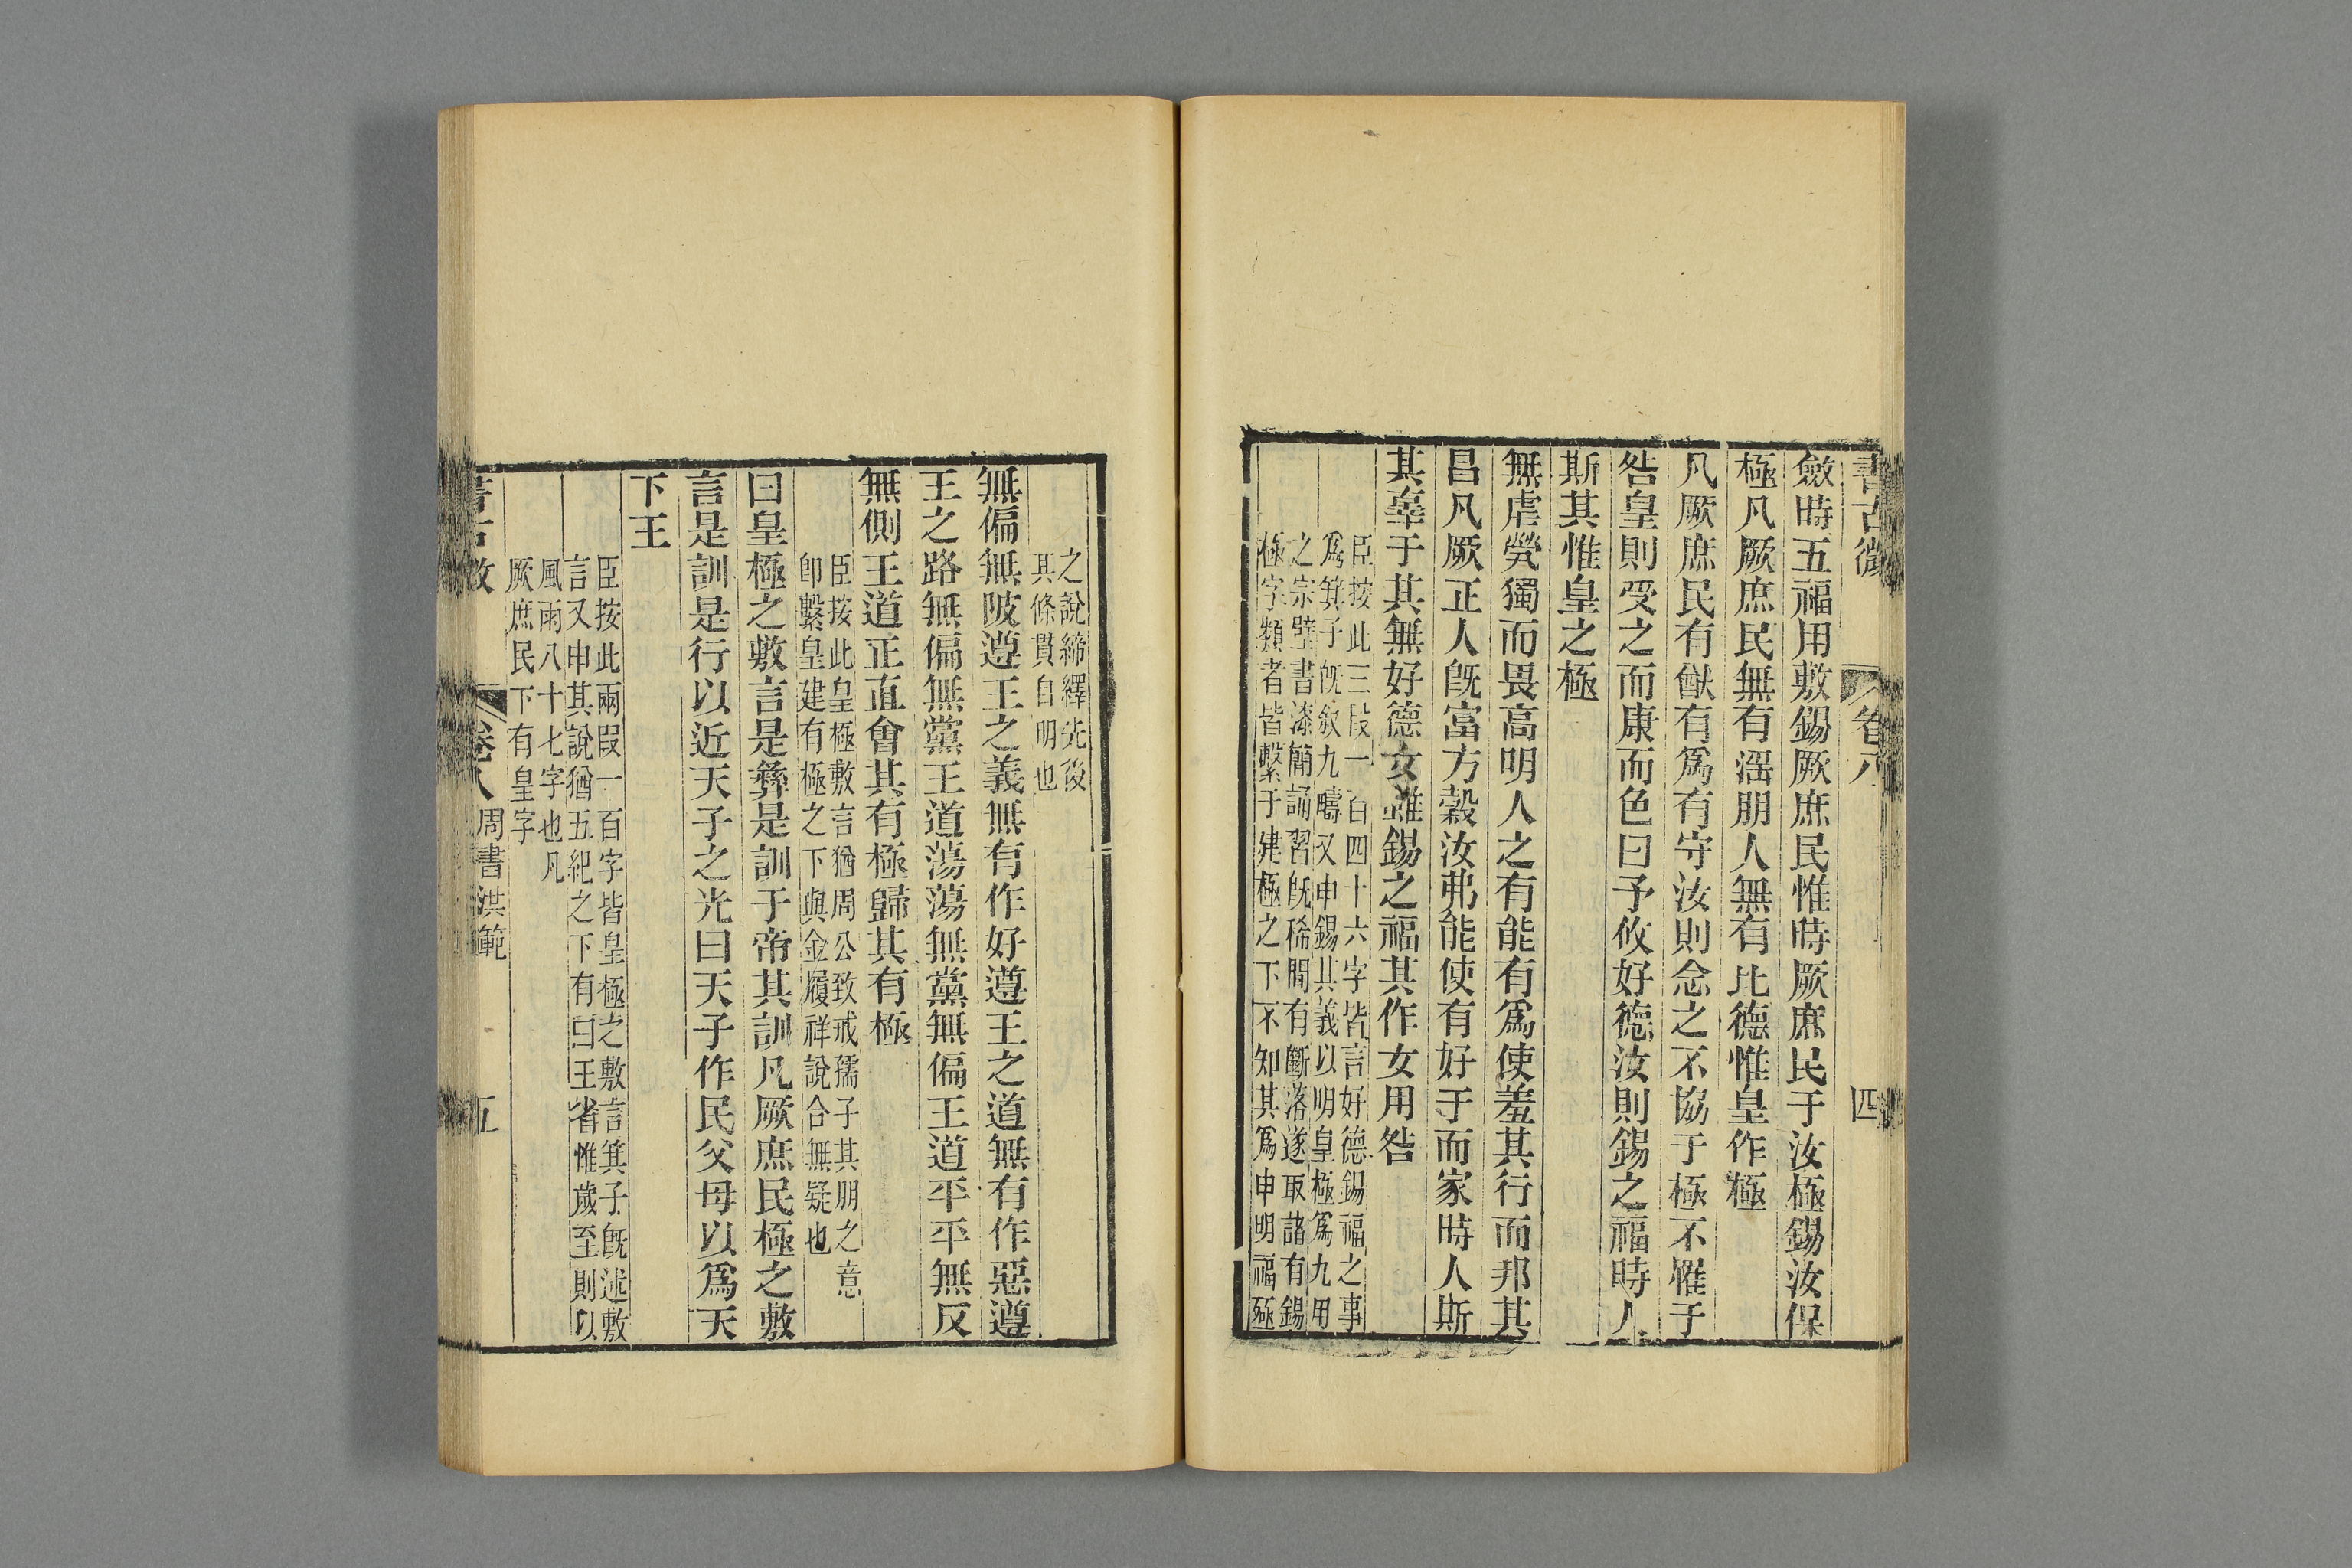 書古微
卷八
四
斂時五福用敷錫厥庶民惟時厥庶民于汝極錫汝保
極凡厥庶民無有淫朋人無有比德惟皇作極
凡厥庶民有猷有爲有守汝則念之不協于極不罹于
咎皇則受之而康而色曰予攸好德汝則錫之福時人
斯其惟皇之極
無虐煢獨而畏高明人之有能有爲使羞其行而邦其
昌凡厥正人既富方穀汝弗能使有好于而家時人斯
其辜于其無好德女雖錫之福其作女用咎
臣按此三段一百四十六字皆言好德錫福之事
爲箕子既敘九疇又申錫其義以明皇極爲九用
之宗壁書漆簡誦習既稀間有斷落遂取諸有錫
極字類者皆繫于建極之下不知其爲申明福極
之說締繹先後
其條貫自明也
無偏無陂遵王之義無有作好遵王之道無有作惡遵
王之路無偏無黨王道蕩蕩無黨無偏王道平平無反
無側王道正直會其有極歸其有極
臣按此皇極敷言猶周公致戒孺子其朋之意
卽繫皇建有極之下與金履祥說合無疑也
曰皇極之敷言是彝是訓于帝其訓凡厥庶民極之敷
言是訓是行以近天子之光曰天子作民父母以爲天
下王
臣按此兩段一百字皆皇極之敷言箕子既述敷
言又申其說猶五紀之下有曰王省惟歲至則以
風雨八十七字也凡
厥庶民下有皇字
書古微
卷八
周書洪範
五